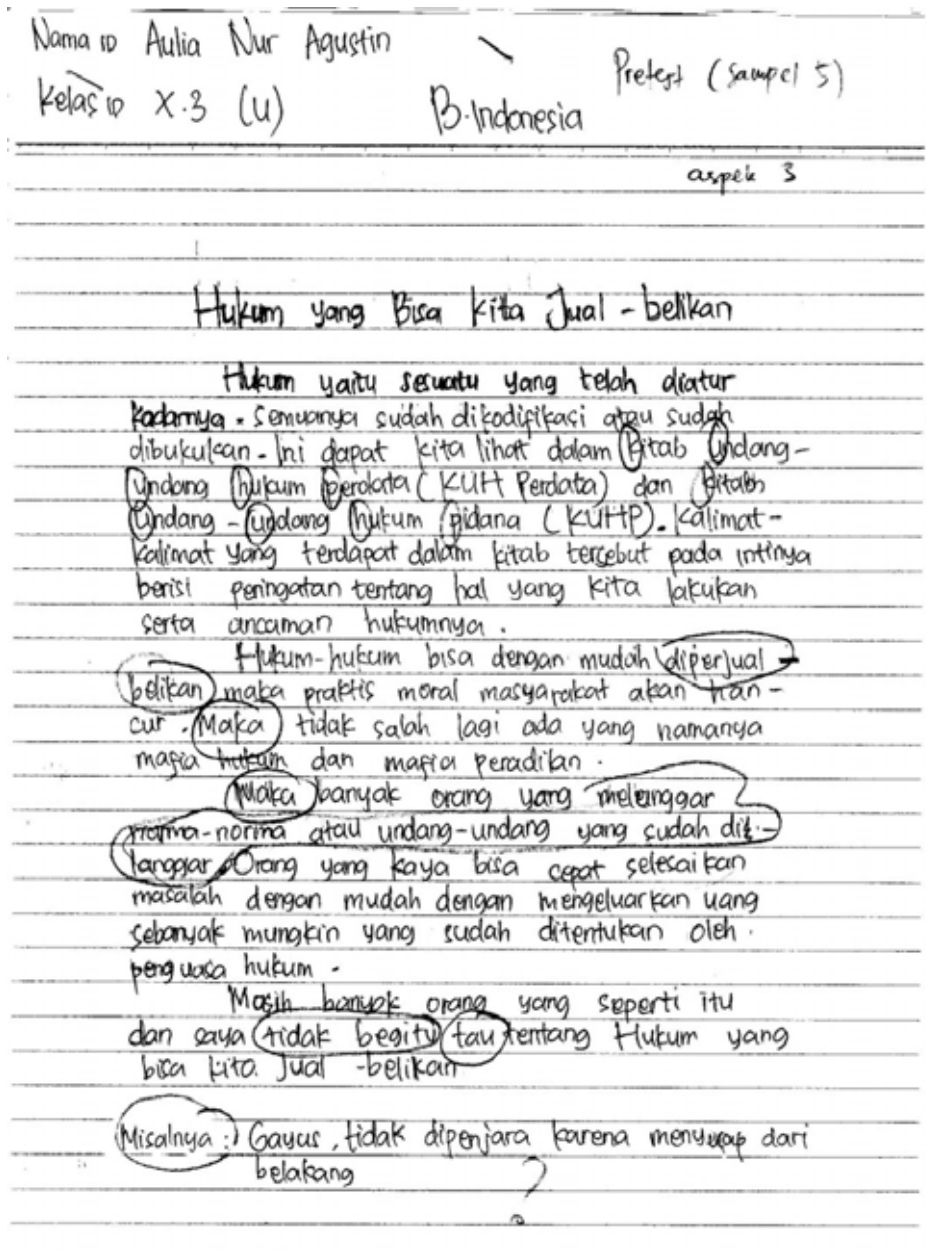 Nama Aulia Nur Agustin
Kelas X.3 (U)
B.Indonesia
Pretest (sampel 5)
aspek 3
Hukum yang Bisa Kita Jual-belikan
Hukum yaitu sesuatu yang telah diatur
kadarnya. Semuanya sudah dikodifikasi atau sudah
dibukukan. Ini dapat kita lihat dalam kitab undang-
undang hukum perdata (KUH Perdata) dan kitab
undang-undang hukum pidana (KUHP). Kalimat-
kalimat yang terdapat dalam kitab tersebut pada intinya
berisi peringatan tentang hal yang kita lakukan
serta ancaman hukumnya.
Hukum-hukum bisa dengan mudah diperjual-
belikan maka praktis moral masyarakat akan han-
cur. Maka tidak salah lagi ada yang namanya
mafia hukum dan mafia peradilan.
Maka banyak orang yang melanggar
norma-norma atau undang-undang yang sudah di-
langgar. Orang yang kaya bisa cepat selesaikan
masalah dengan mudah dengan mengeluarkan uang
sebanyak mungkin yang sudah ditentukan oleh
penguasa hukum.
Masih banyak orang yang seperti itu
dan saya tidak begitu tau tentang Hukum yang
bisa kita Jual-belikan
Misalnya: Gayus, tidak dipenjara karena menyuap dari
belakang ?